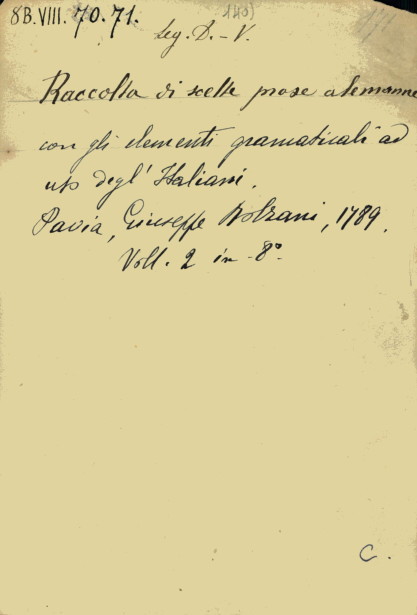 8B.VIII. 70.71.
Leg. D.-V.
Raccolta di scelte prose alemanne
con gli elementi gramaticali ad
uso degl' Italiani.
Pavia, Giuseppe Bolzani, 1789.
Voll. 2 in-8°
C.